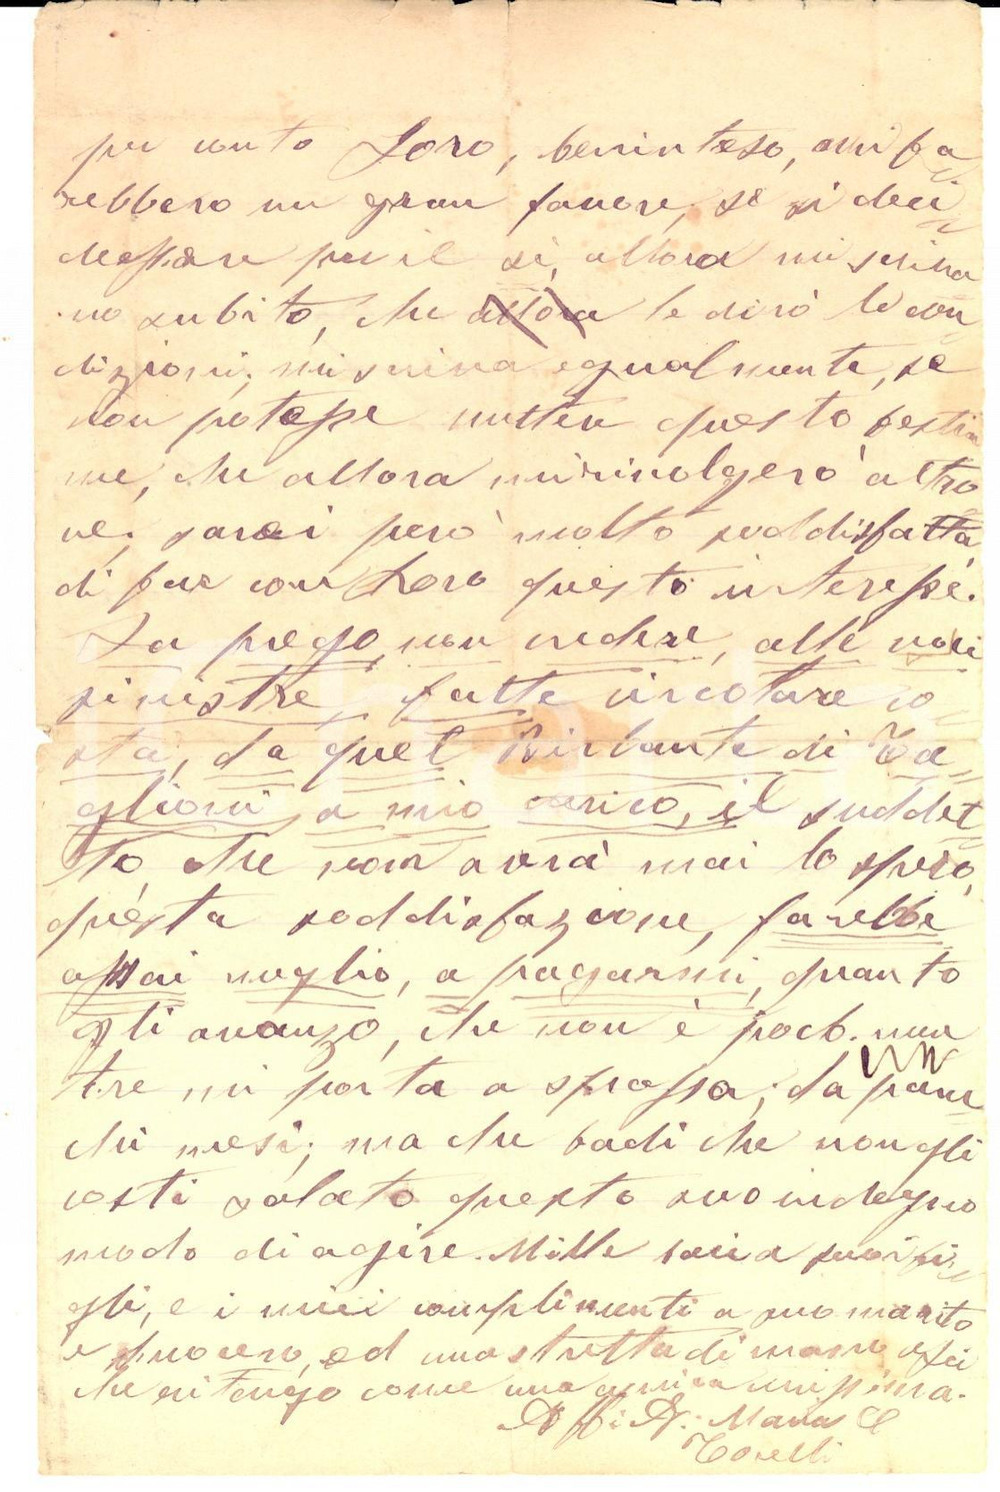 per conto Loro, beninteso, mi fa
rebbero un gran favore, se si deci
dessere per il si, allora mi scriva
no subito, che allora le dirò le con
dizioni; mi scriva egualmente, se
non potesse mettere questo bestia
me, che allora mi rivolgerò altro
ve; sarei però molto soddisfatta,
di far con Loro questo interesse.
La prego, non credere, alle voci
sinistre, fatte circolare co
sta, da quel Birbante di Ta
glioni a mio carico, il suddet
to, che non avrà mai lo spero,
questa soddisfazione, farebbe
assai meglio, a pagarmi, quanto
gli avanzo, che non è poco. men
tre mi porta a spasso, da parec
chi mesi; ma che badi che non gli
costi salato questo suo indegno
modo di agire. Mille baci a suoi fi
gli, e i miei complimenti a suo marito
e suocero, ed una stretta di mano a Lei
che ritengo come una amica carissima.
Aff. A. Maria C
Torelli